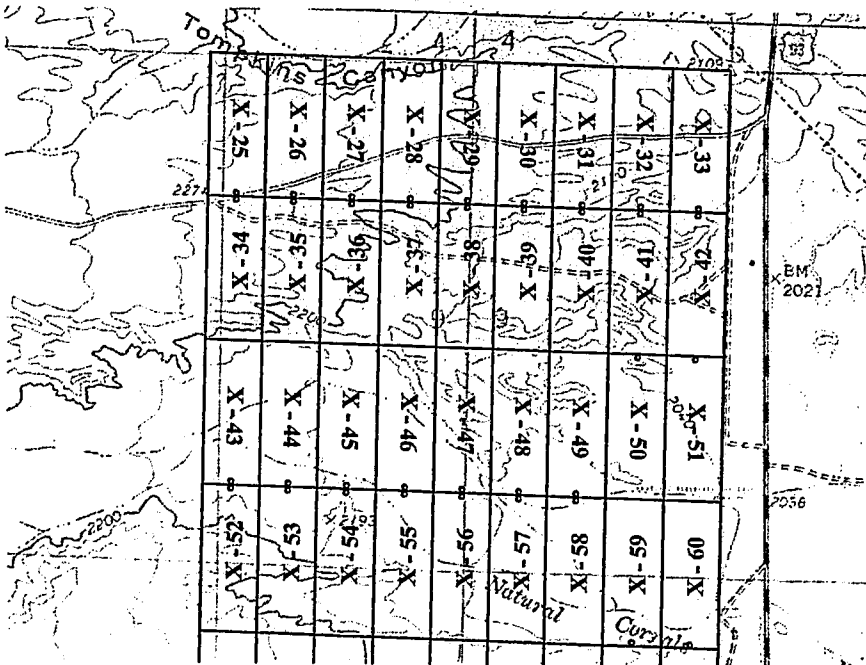 Tompkins Canyon
4
4
93
2109
X-25
X-26
X-27
X-28
X-29
X-30
X-31
X-32
X-33
227
21 0
X-34
X-35
X-36
X-37
X-38
X-39
X-40
X-41
X-42
BM
2021
220
X-43
X-44
X-45
X-46
X-47
X-48
X-49
X-50
X-51
2040
2056
2193
2200
X-52
X-53
X-54
X-55
X-56
X-57
X-58
X-59
X-60
Natural
Corrals